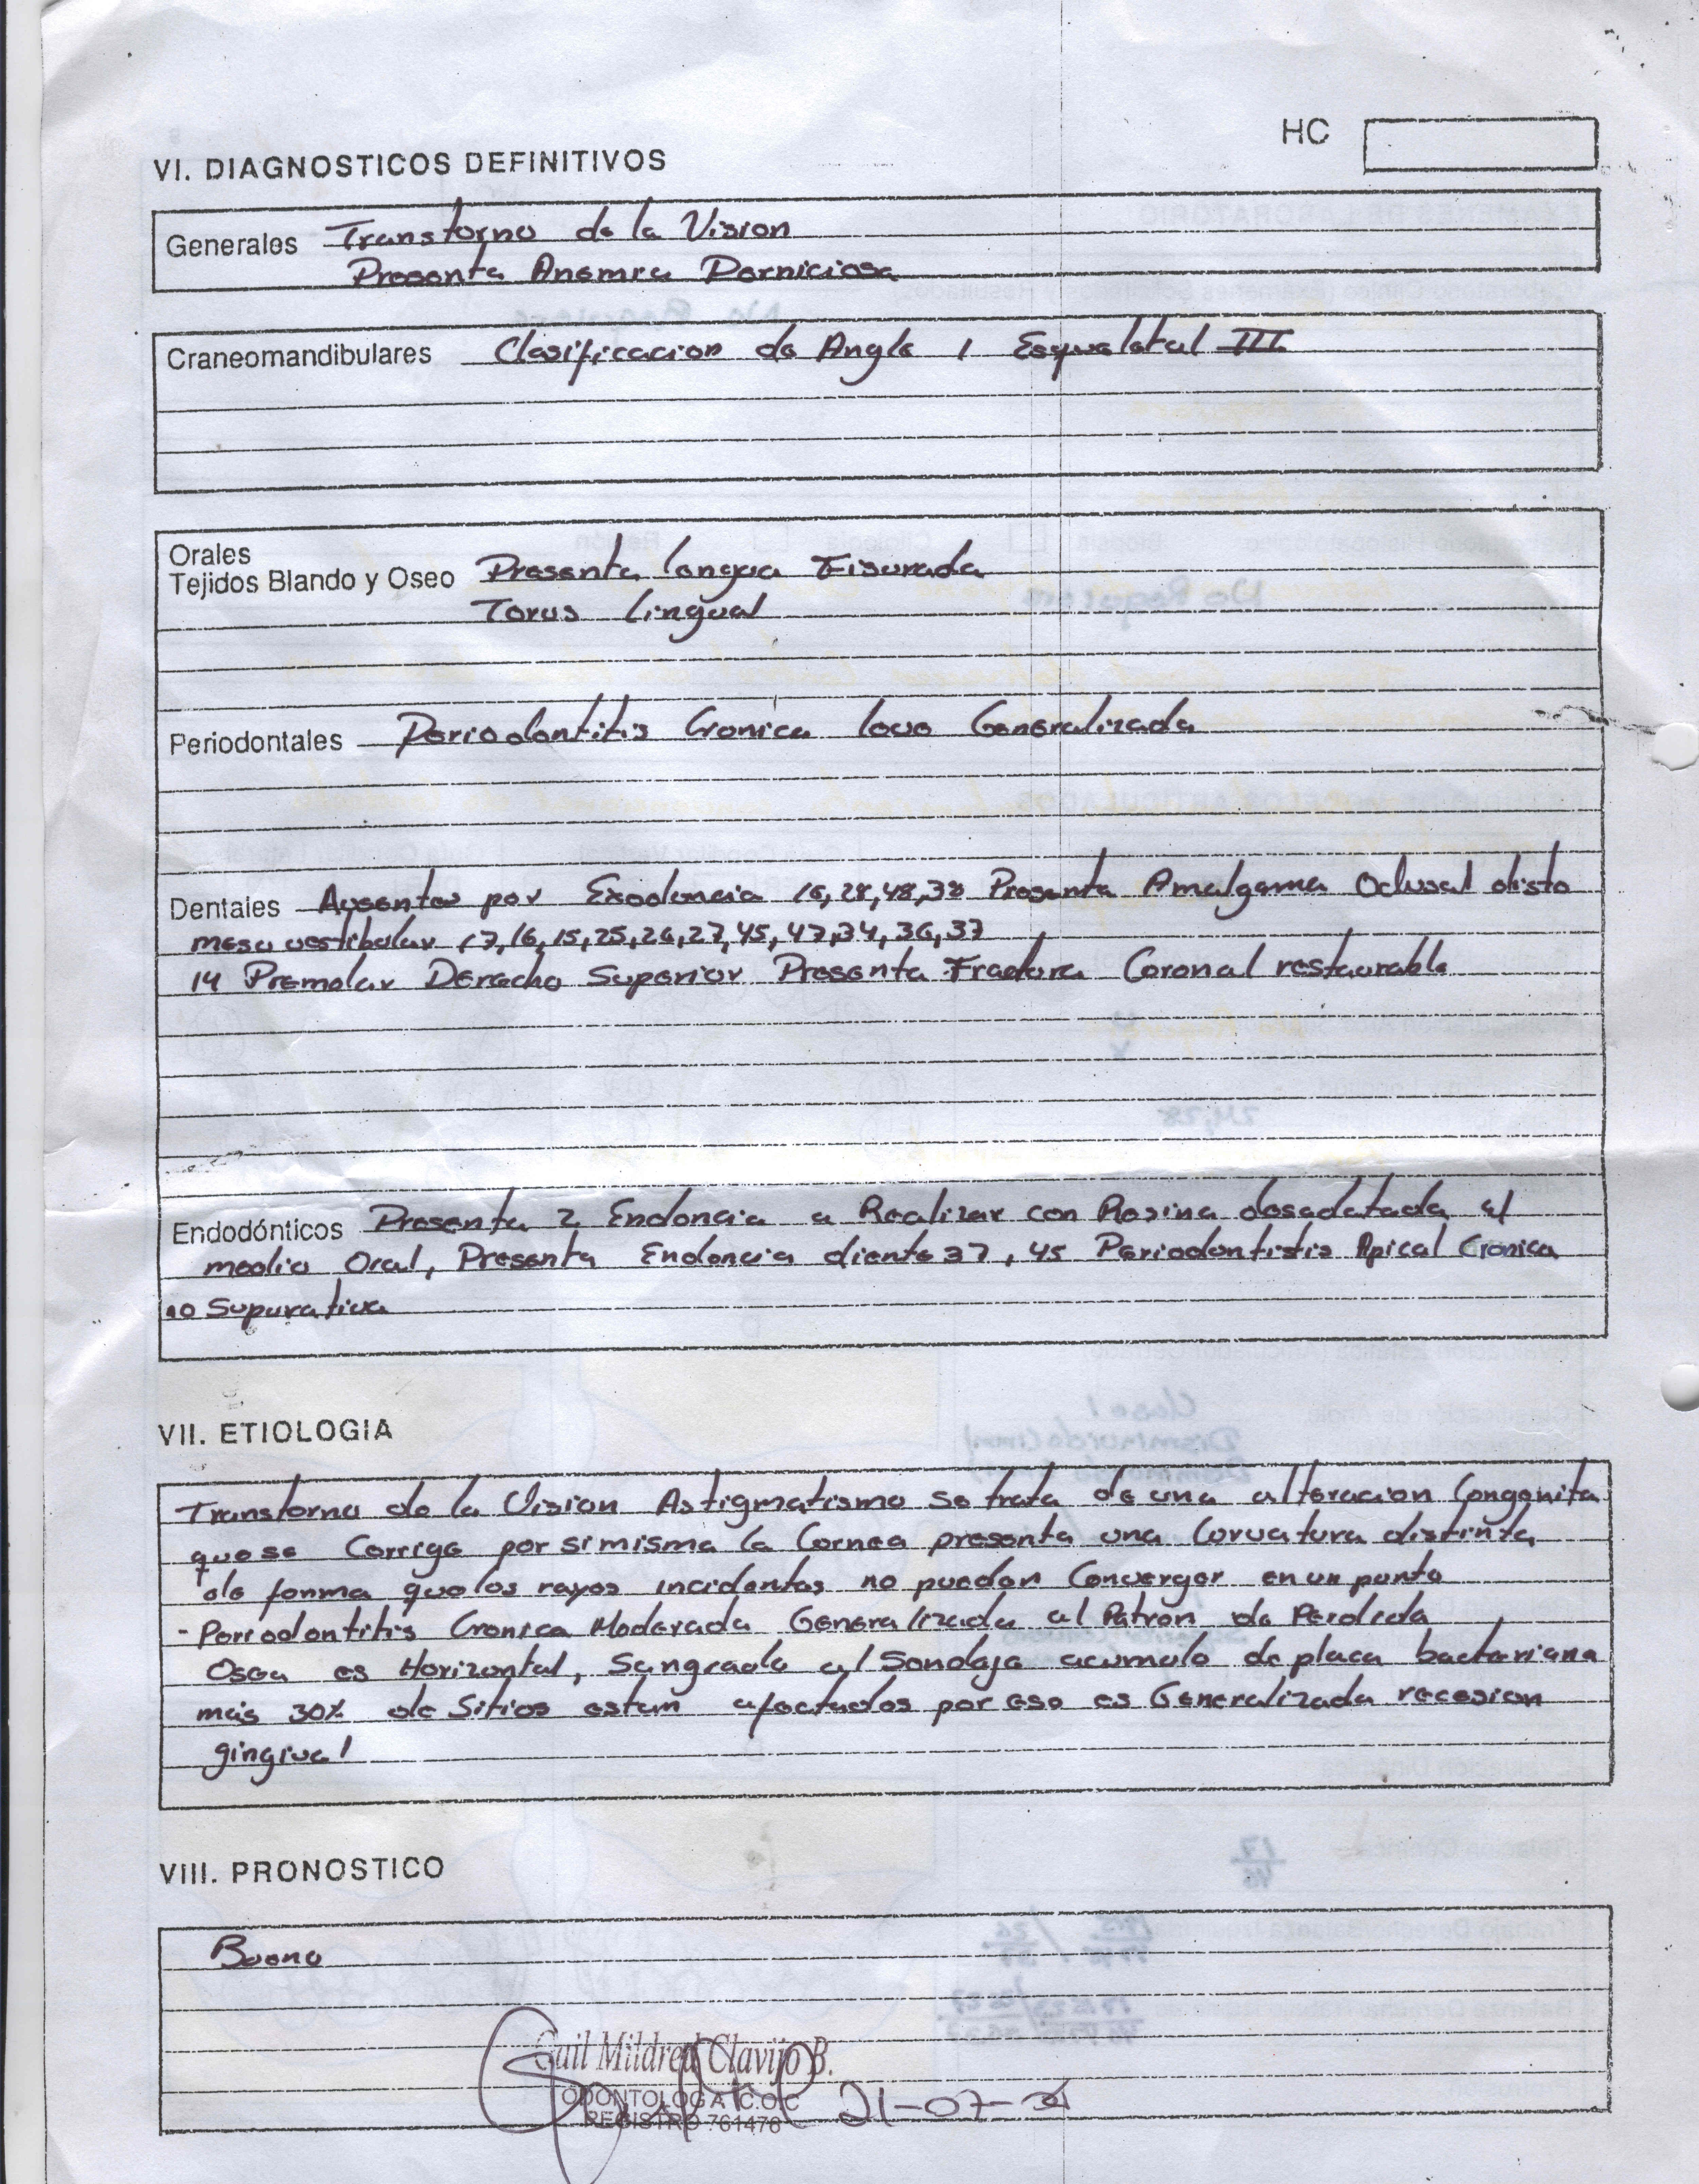 HC
VI. DIAGNOSTICOS DEFINITIVOS
Generales Transtorno de la Vision
Presenta Anemia Perniciosa
Craneomandibulares Clasificacion de Angle 1 Esqueletal III
Orales
Tejidos Blando y Oseo Presenta lengua Fisurada
Torus lingual
Periodontales Periodontitis Cronica leve Generalizada
Dentales Ausentes por Exodoncia 18,28,48,38 Presenta Amalgama Oclusal disto
meso vestibular 17,16,15,25,26,27,45,47,34,36,37
14 Premolar Derecho Superior Presenta Fractura Coronal restaurable
Endodónticos Presenta 2 Endoncia a Realizar con Resina desadatada al
medio Oral, Presenta Endoncia diente 37, 45 Periodontistis Apical Cronica
no Supurativa
VII. ETIOLOGIA
Transtorno de la Vision Astigmatismo se trata de una alteracion Congenita
que se Corrige por si misma la Cornea presenta una Corvatura distinta
de forma que los rayos incidentes no pueden Converger en un punto
- Periodontitis Cronica Moderada Generalizada al Patron de Perdida
Osea es Horizontal, Sangrado al Sondaje acumulo de placa bacteriana
más 30% de Sitios estan afectados por eso es Generalizada recesion
gingival
VIII. PRONOSTICO
Bueno
Gail Mildred Clavijo B.
ODONTOLOGA C.O.C
REGISTRO 761476
21-07-